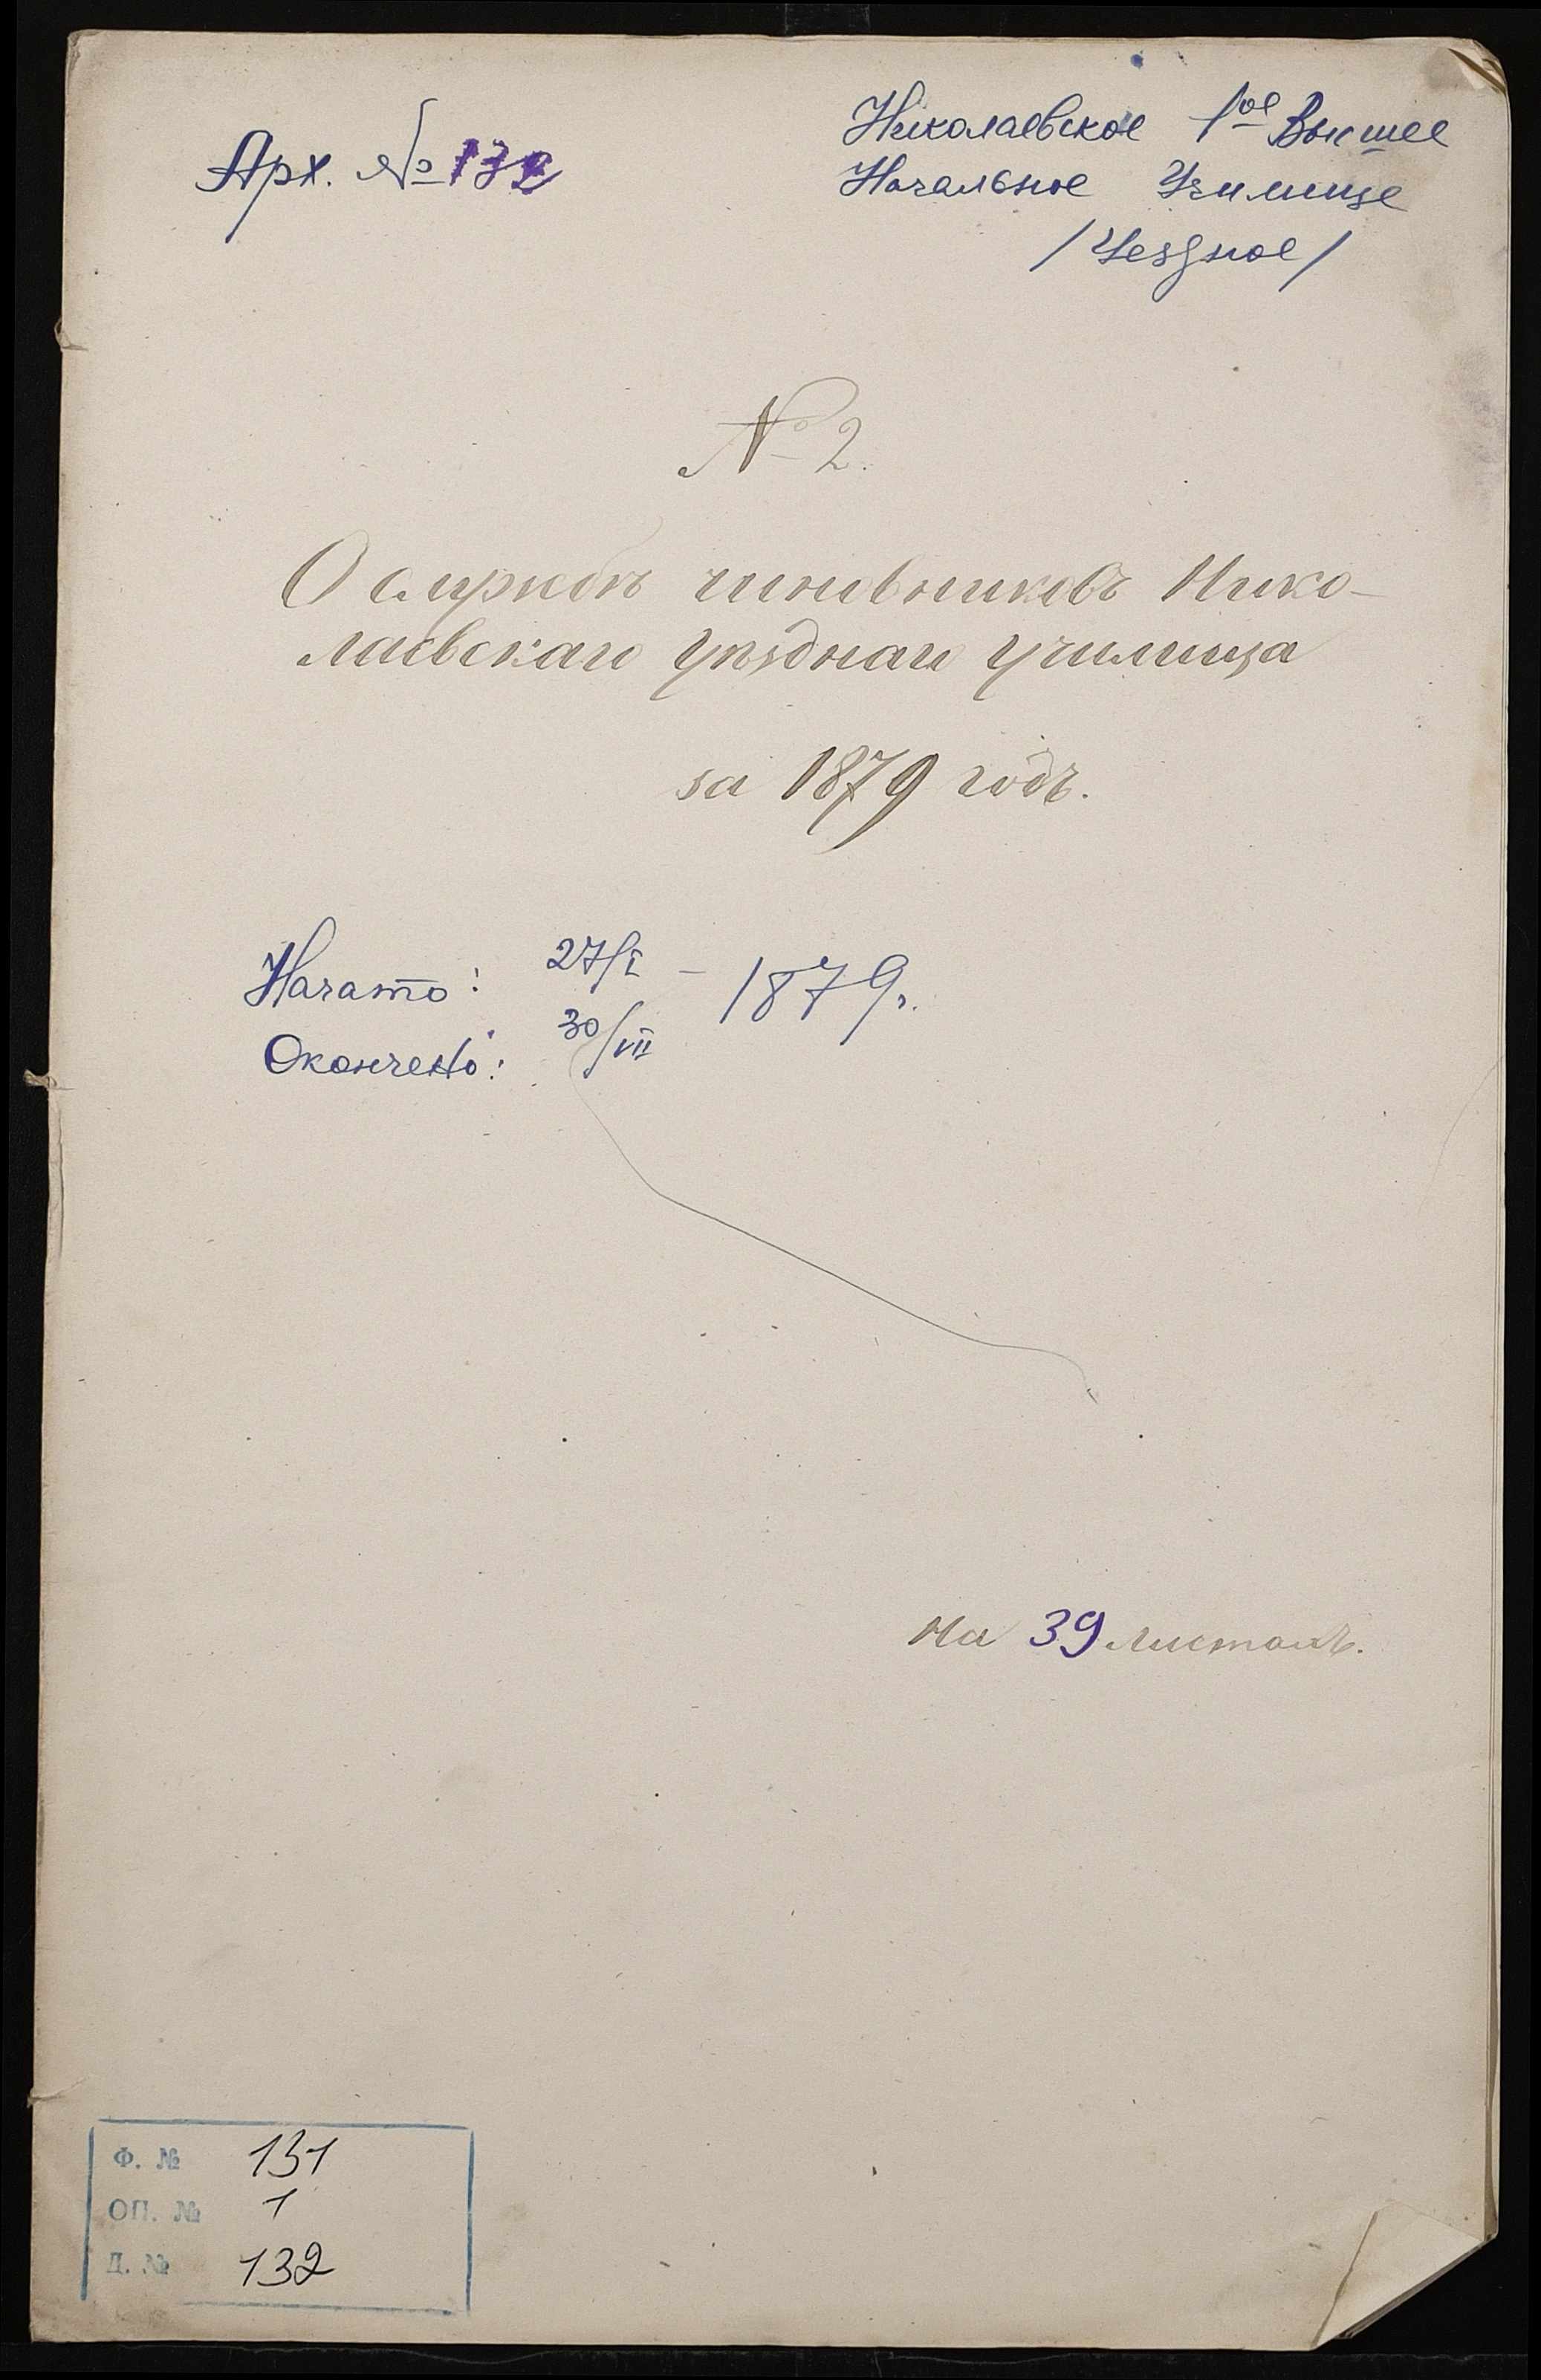 Арх. № 132
Николаевское 1ое Высшее
Начальное Училище
/Уездное/
№ 2.
О службѣ чиновниковъ Нико-
лаевскаго уѣзднаго училища
за 1879 годъ.
Начато: 27/I – 1879г.
Окончено: 30/VII
На 39 листахъ.
Ф. № 131
ОП. № 1
Д. № 132